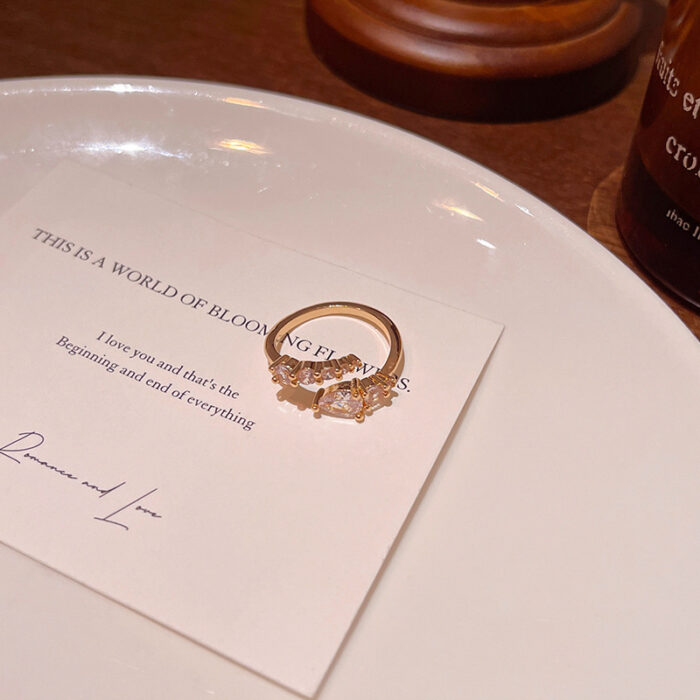 THIS IS A WORLD OF BLOOMING FLOWERS.
I love you and that's the
Beginning and end of everything
Romance and Love